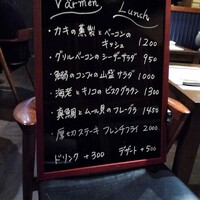 Varmen
Lunch
・カキの燻製とベーコンの
キッシュ 1200
・グリルベーコンのシーザーサラダ 950
・鰯のコンフィの山盛サラダ 1000
・海老とキノコのビスクグラタン 1300
・真鯛とムール貝のブレゼ 1450
・厚切ステーキ フレンチフライ 2000
ドリンク +300 デザート +500